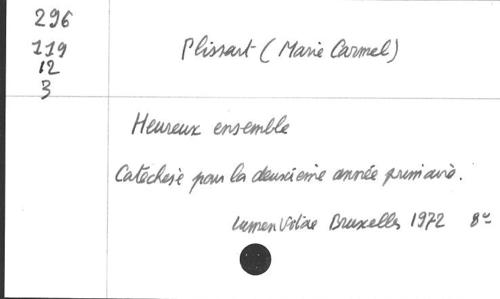 296
119
12
3
Plissart (Marie Carmel)
Heureux ensemble
Catéchèse pour la deuxième année primaire.
Lumen Vitae Bruxelles 1972 8º